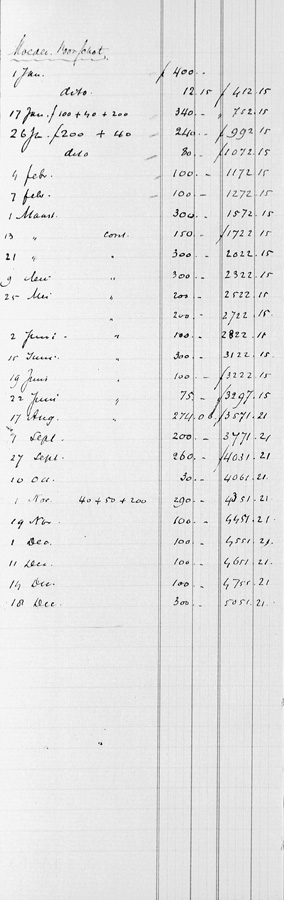 Moeder. Voorschot.
1 Jan. ƒ 400. -
dito. 12.15 ƒ 412.15
17 Jan. ƒ100 + 40 + 200 340. - " 752.15
26 Ja. ƒ200 + 40 240. - ƒ992.15
dito 80. - ƒ1072.15
4 febr. 100. - 1172.15
7 febr. 100. - 1272.15
1 Maart. 300. 1572.15
13 " cont. 150. - ƒ1722.15
21 " " 300. - 2022.15
9 Mei " 300. - 2322.15
25 Mei " 200. - 2522.15
" 200. - 2722.15
2 Juni - " 100. - 2822.15
15 Juni. " 300. - 3122.15
19 Juni " 100. - ƒ3222.15
22 Juni " 75. - ƒ3297.15
17 Aug. " 274.06 ƒ3571.21
7 Sept. 200. - 3771.21
27 Sept. 260. - ƒ4031.21
10 Oct. 30. - 4061.21
1 Nov. 40 + 50 + 200 290. - 4351.21
19 Nov. 100. - 4451.21.
1 Dec. 100. - 4551.21
11 Dec. 100. - 4651.21
14 Dec. 100. - 4751.21
18 Dec. 300. - 5051.21.
"